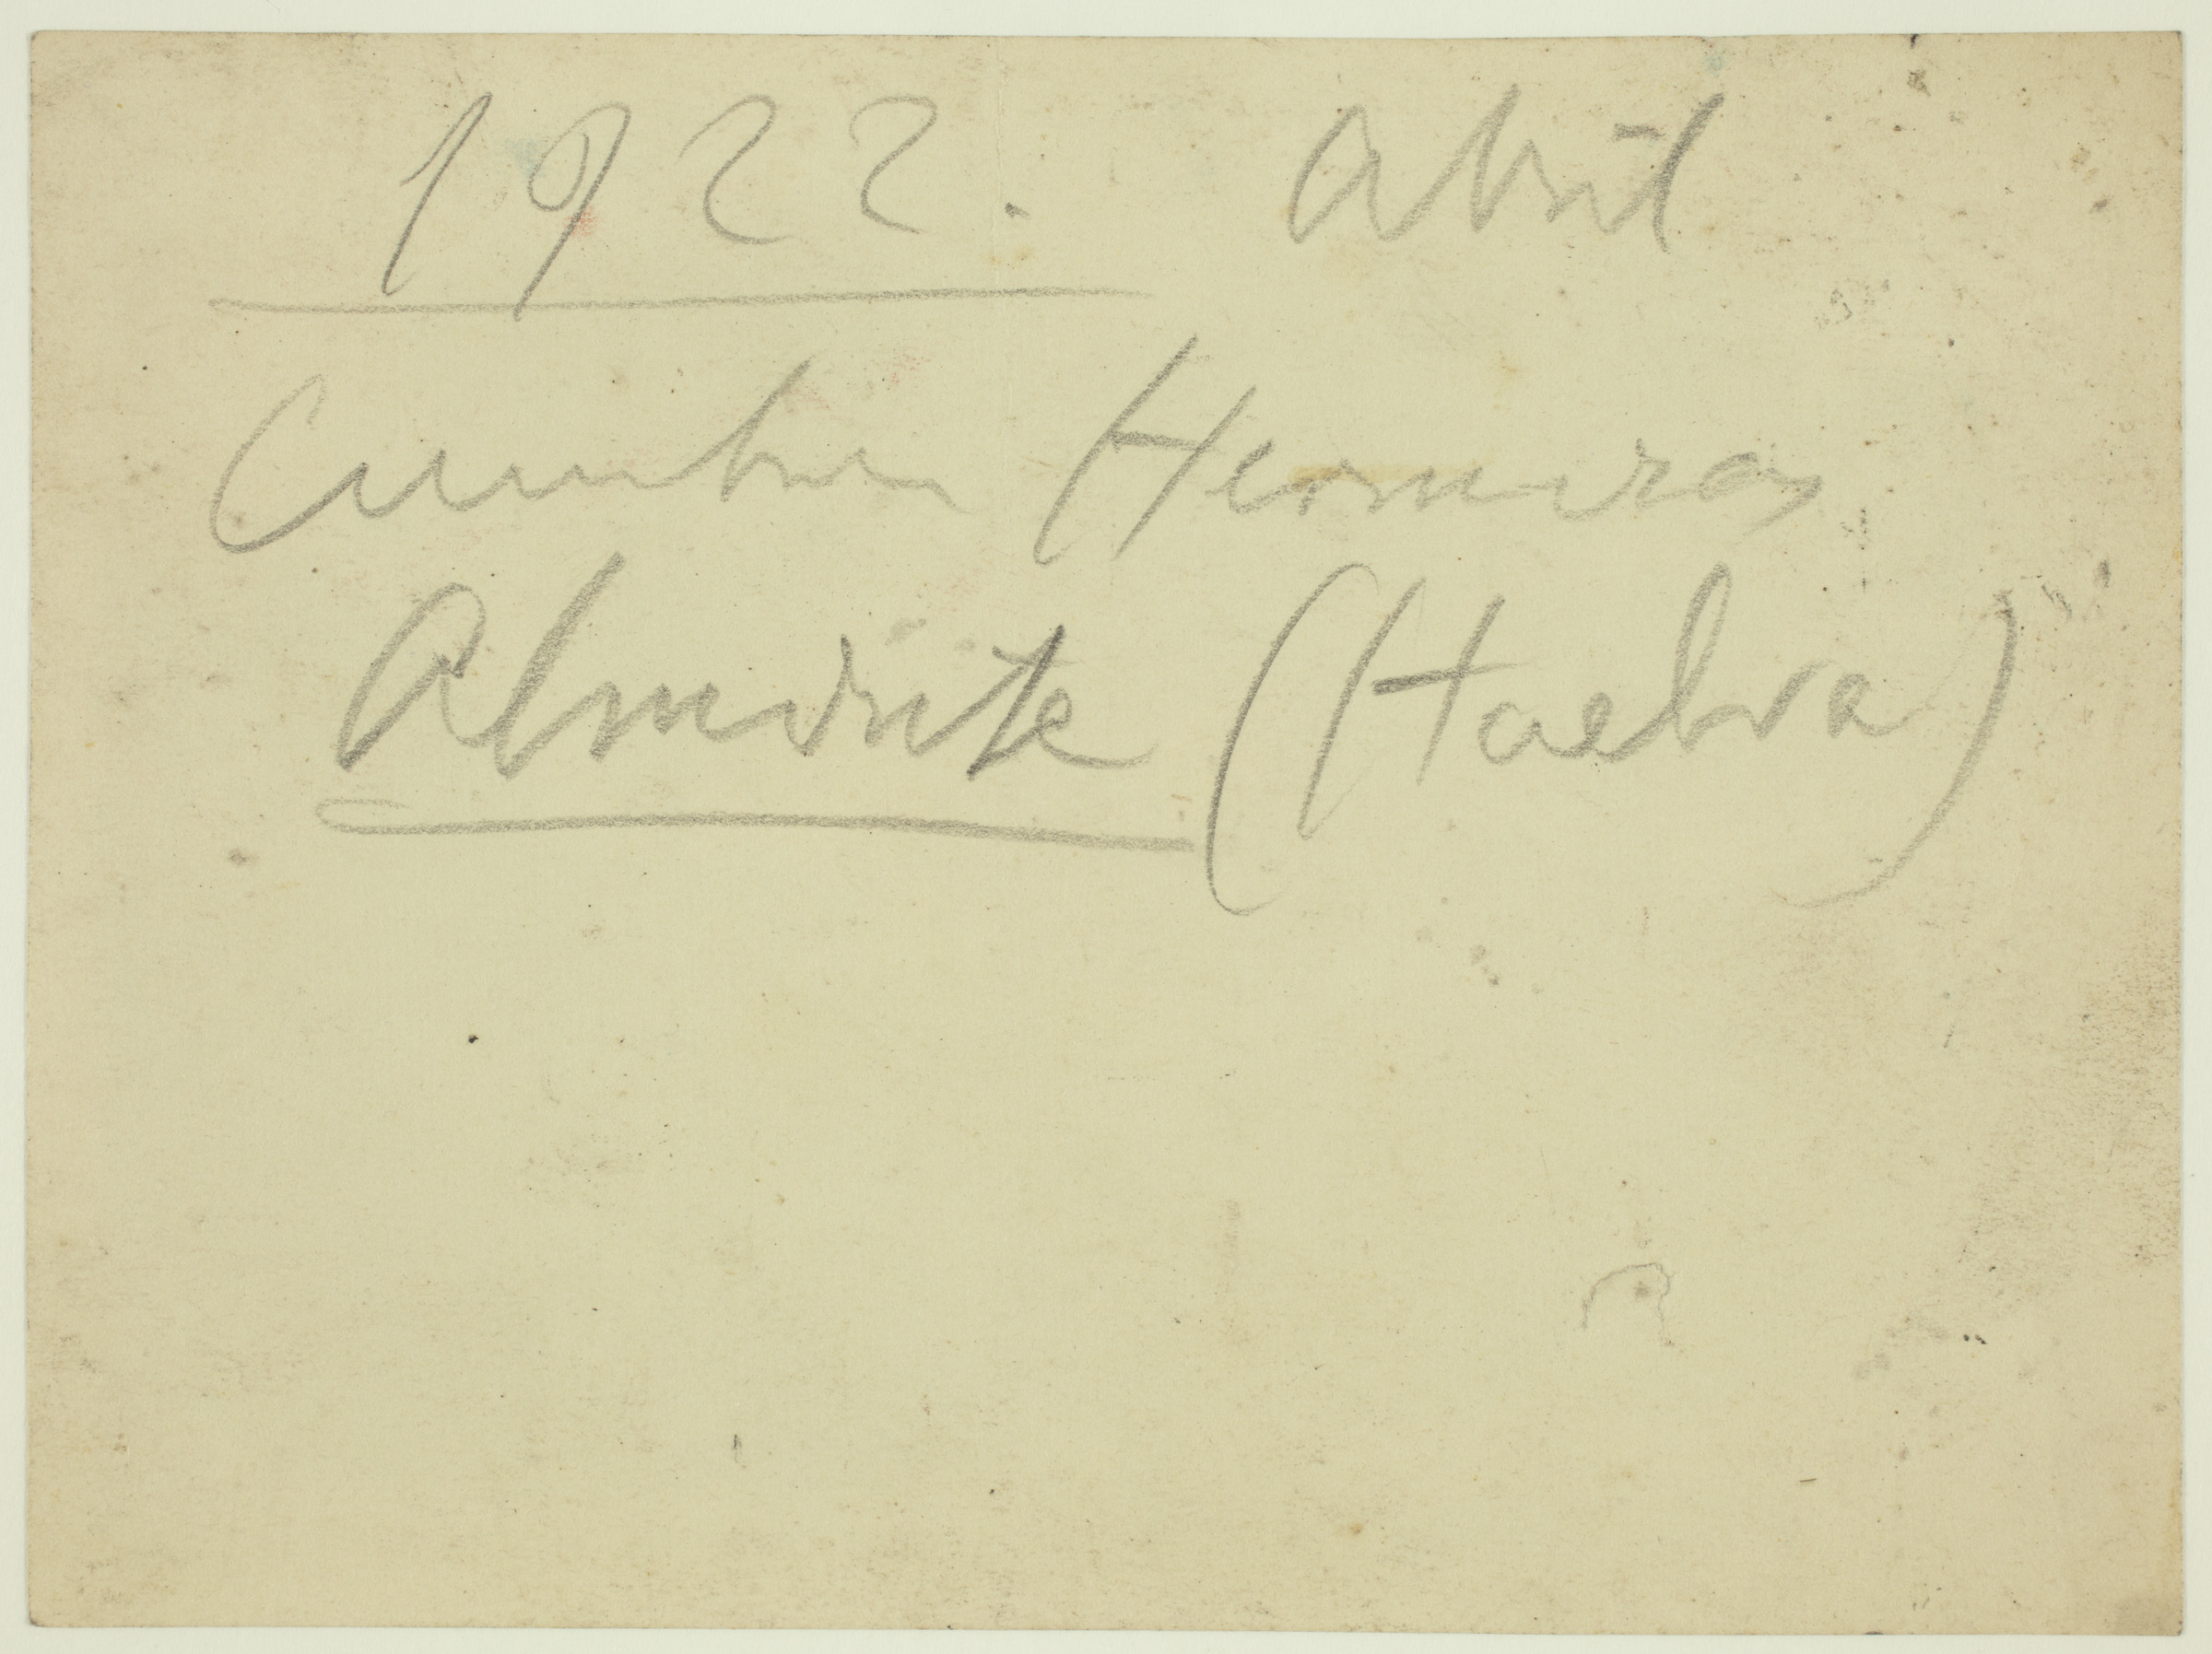 1922. Abril
Cumbres Hermosas
Almonte (Huelva)